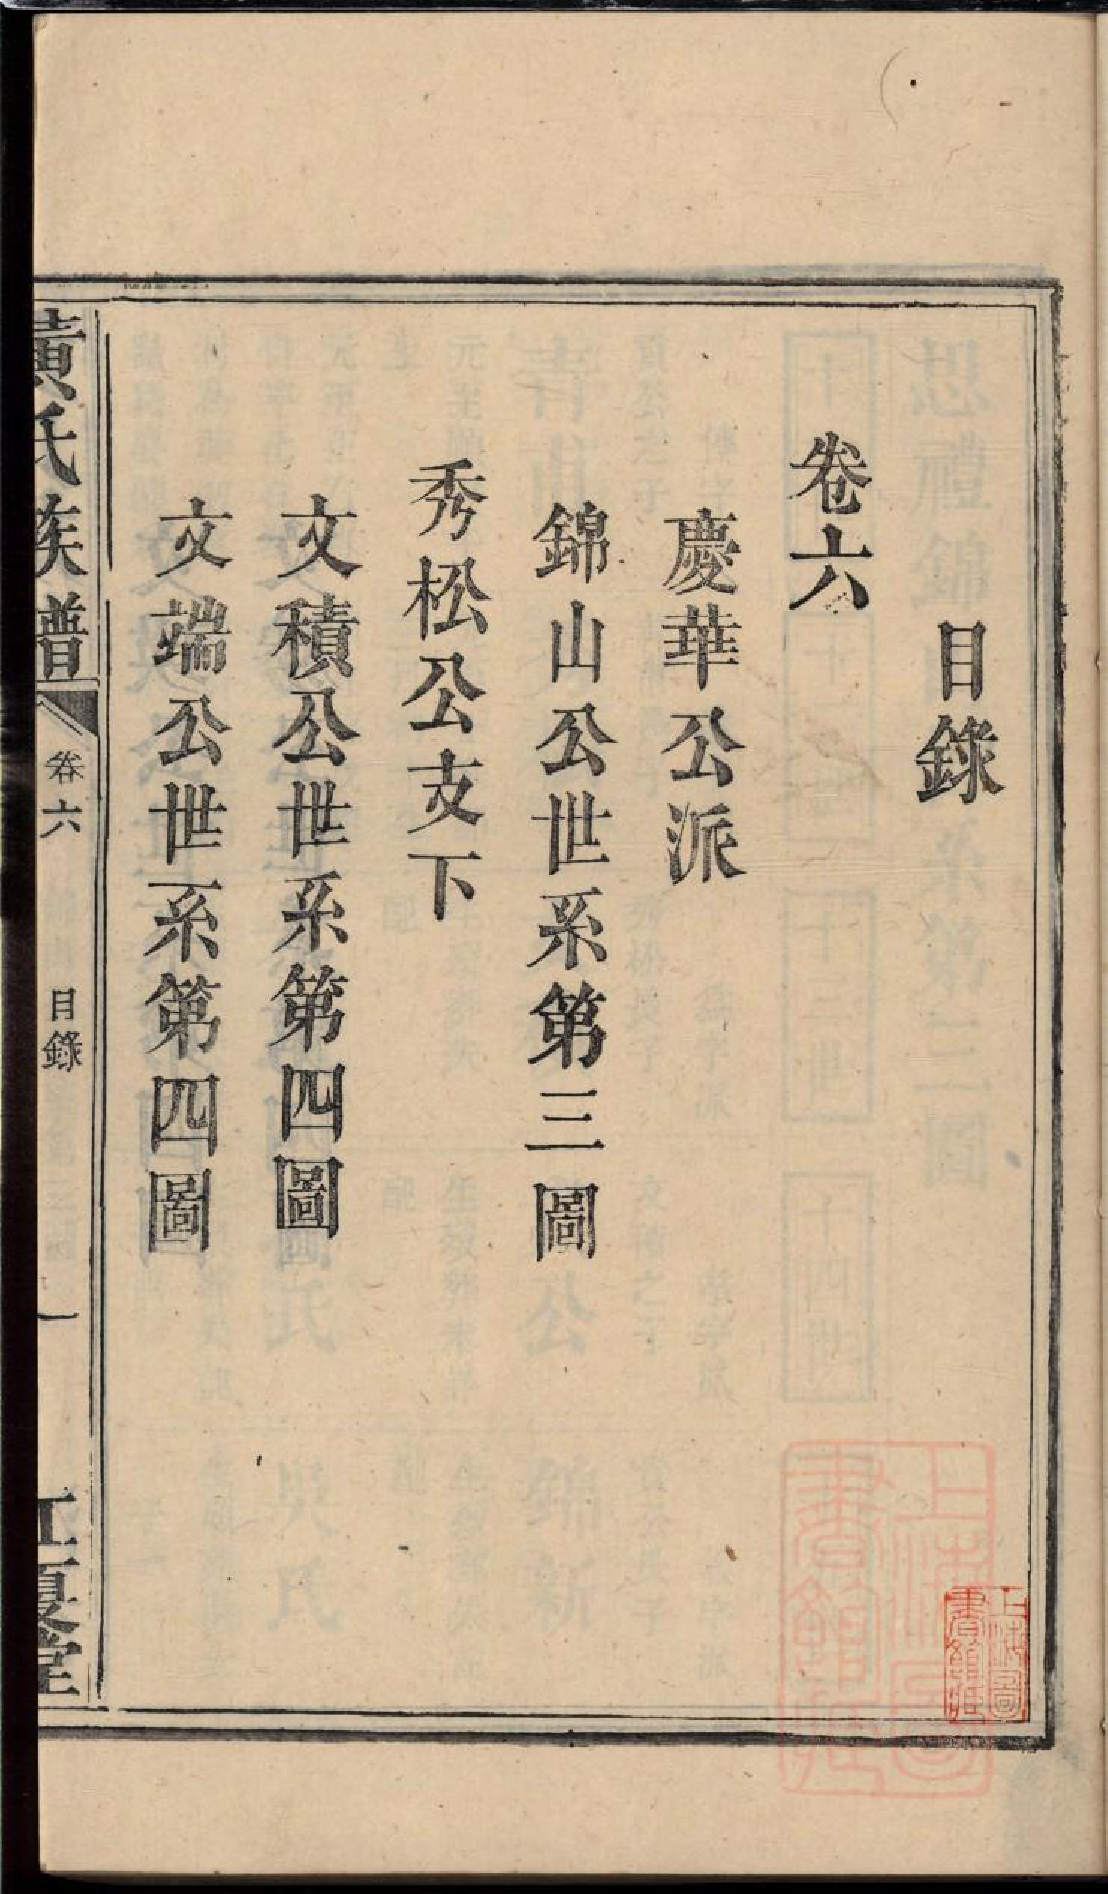 目錄
卷六
慶華公派
錦山公世系第三圖
秀松公支下
文積公世系第四圖
文端公世系第四圖
黃氏族譜
卷六
目錄
一
江夏堂
上海圖
書館藏